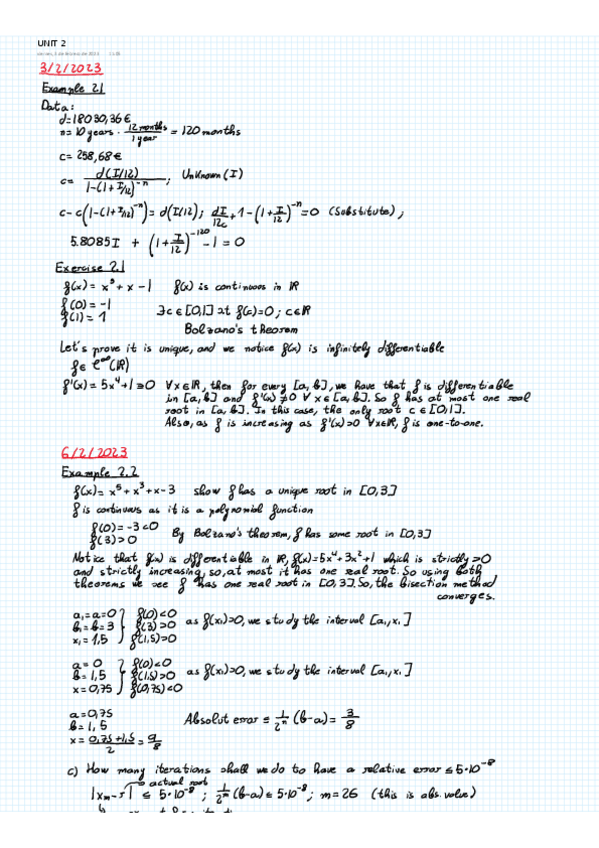 UNIT 2
viernes, 3 de febrero de 2023
3/2/2023
Example 2.1
Data:
d=18030,36€
n=10 years · 12 months/1 year = 120 months
c=258,68€
c= d(I/12)/1-(1+I/12)^-n ; Unknown (I)
c-c(1-(1+I/12)^-n)=d(I/12); dI/12c +1-(1+I/12)^-n=0 (Substitute);
5.8085I + (1+I/12)^-120 -1=0
Exercise 2.1
f(x)=x⁵+x-1 f(x) is continuos in ℝ
f(0)=-1
f(1)=1
∃c∈[0,1] at f(c)=0; c∈ℝ
Bolzano's theorem
Let's prove it is unique, and we notice f(x) is infinitely differentiable
f∈C^∞(ℝ)
f'(x)=5x⁴+1≥0 ∀x∈ℝ, then for every [a,b], we have that f is differentiable
in [a,b] and f'(x)≠0 ∀x∈[a,b]. So f has at most one real
root in [a,b]. In this case, the only root c∈[0,1].
Also, as f is increasing as f'(x)>0 ∀x∈ℝ, f is one-to-one.
6/2/2023
Example 2.2
f(x)=x⁵+x³+x-3 show f has a unique root in [0,3]
f is continuos as it is a polynomial function
f(0)=-3<0
f(3)>0
By Bolzano's theorem, f has some root in [0,3]
Notice that f(x) is differentiable in ℝ, f(x)=5x⁴+3x²+1 which is strictly >0
and strictly increasing, so, at most it has one real root. So using both
theorems we see f has one real root in [0,3]. So, the bisection method
converges.
a₁=a=0 f(0)<0
b₁=b=3 f(3)>0 as f(x₁)>0, we study the interval [a₁,x₁]
x₁=1,5 f(1,5)>0
a=0 f(0)<0
b=1,5 f(1,5)>0 as f(x₁)>0, we study the interval [a₁,x₁]
x=0,75 f(0,75)<0
a=0,75
b=1,5
x= 0,75+1,5/2 = 9/8
Absolut error ≤ 1/2ⁿ (b-a)= 3/8
c) How many iterations shall we do to have a relative error ≤5·10⁻⁸
actual root
|xₘ-r| ≤ 5·10⁻⁸; 1/2ⁿ(b-a)≤5·10⁻⁸; m=26 (this is abs. value)